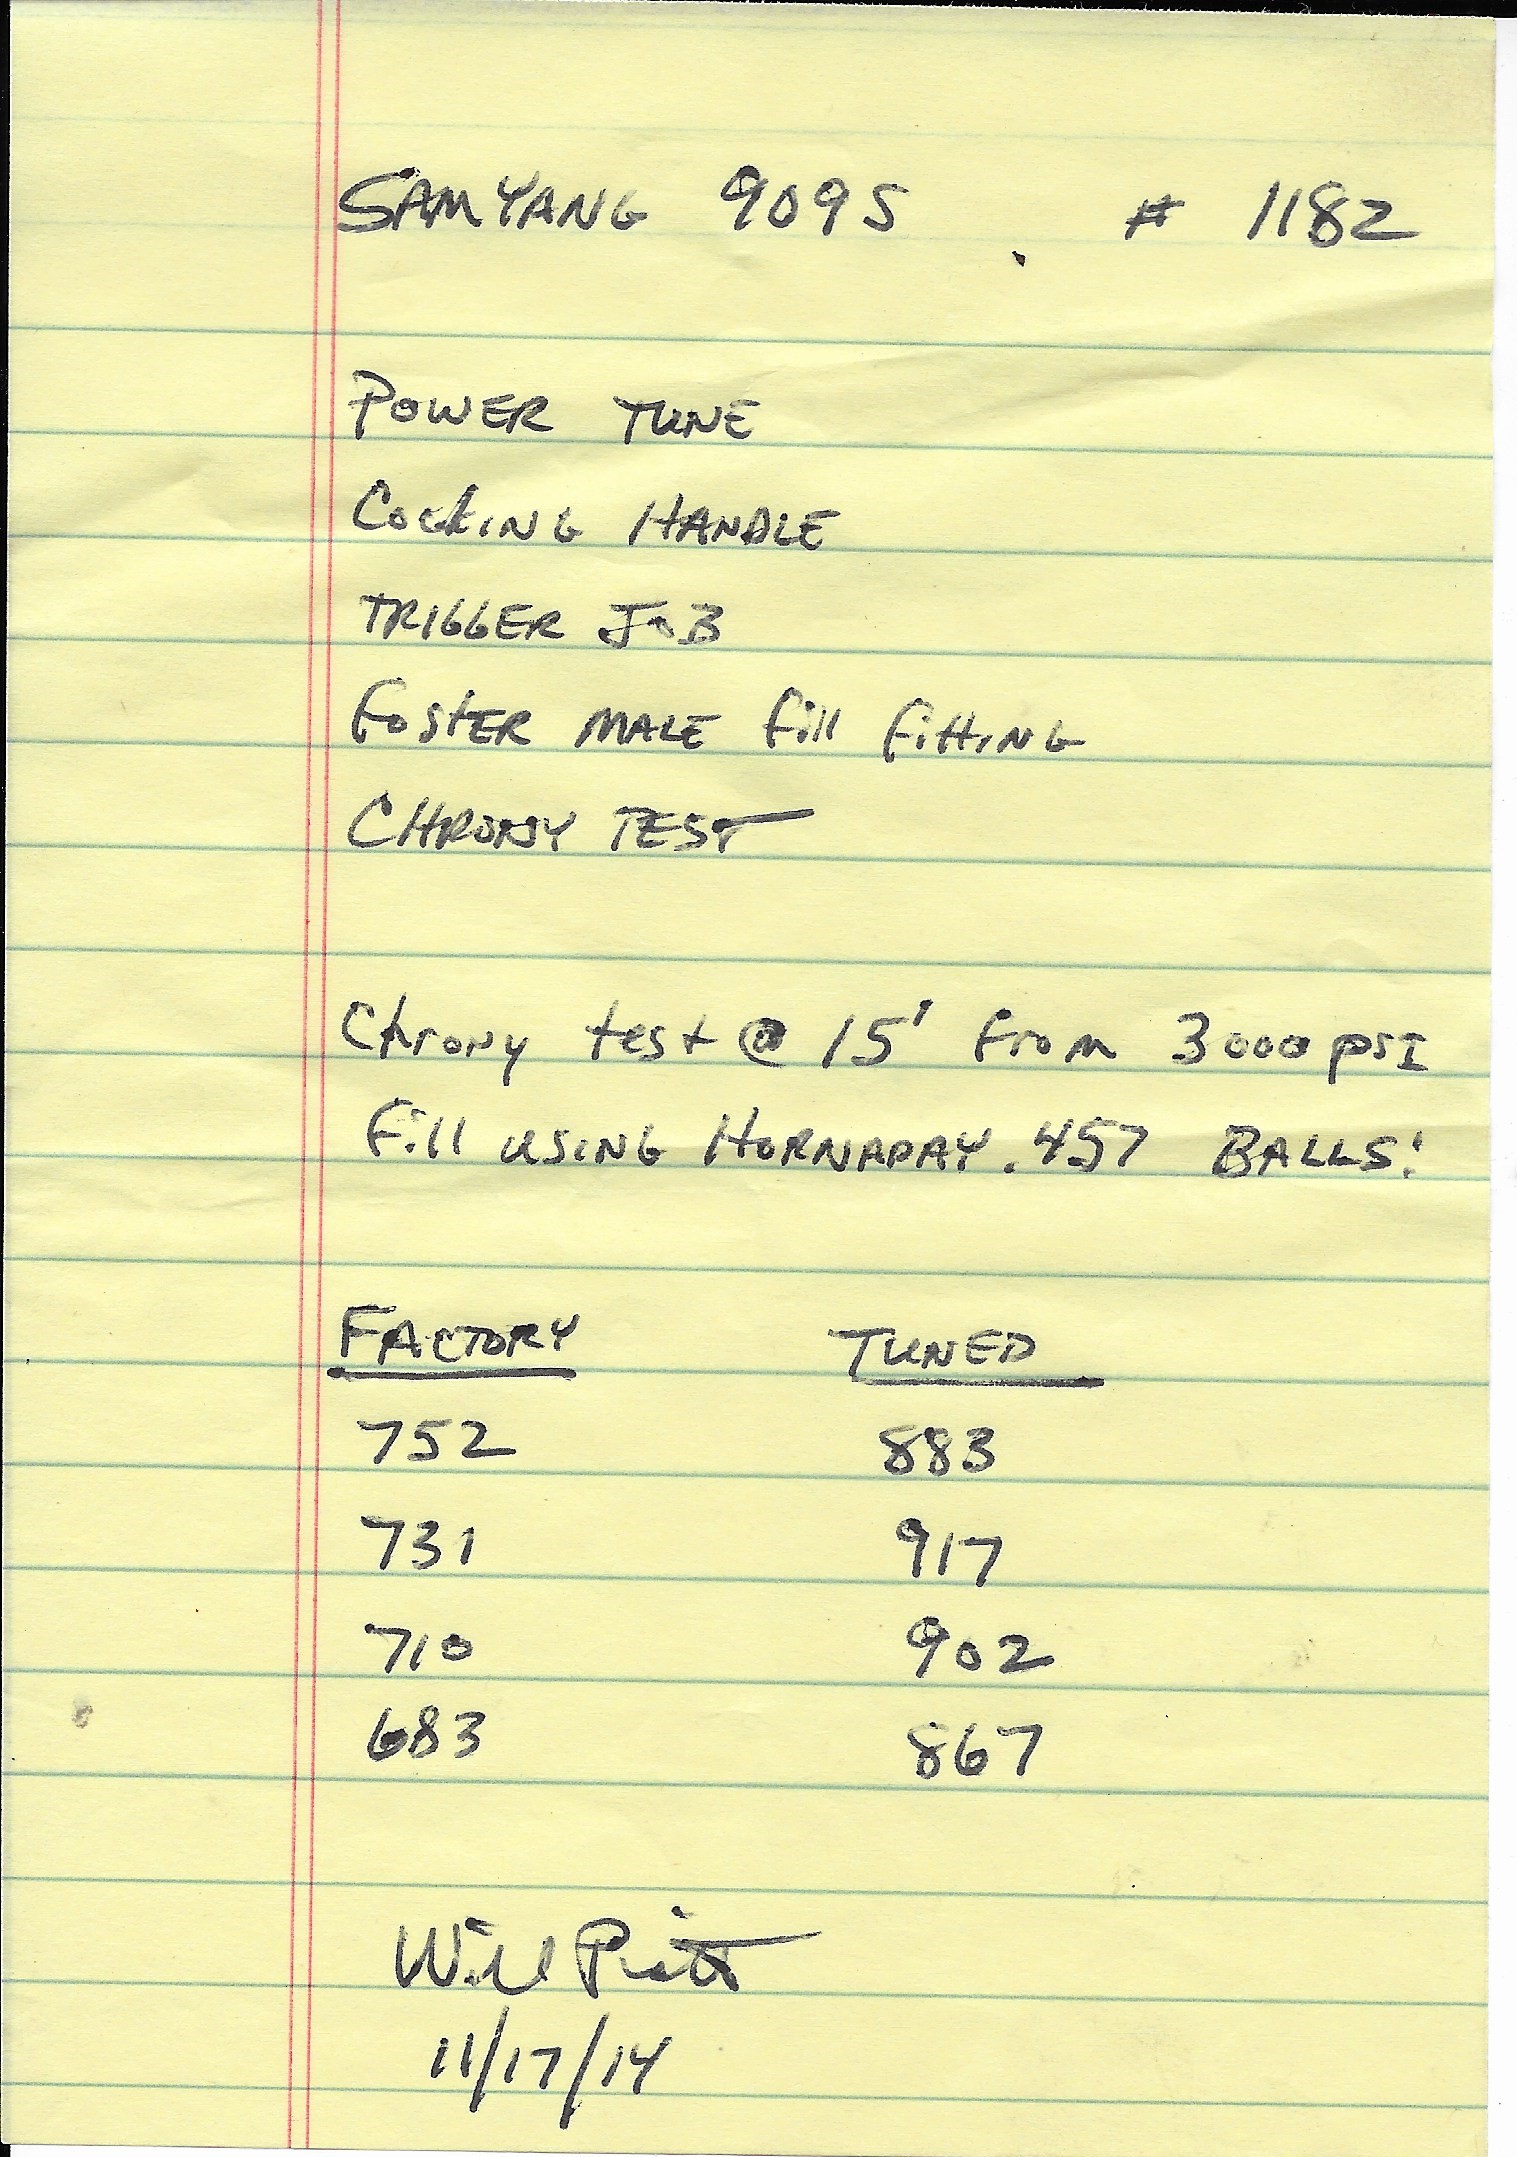 SAMYANG 909S # 1182
POWER TUNE
COCKING HANDLE
TRIGGER JOB
FOSTER MALE Fill FittING
CHRONY TEST
Chrony test @ 15' from 3000 psi
Fill USING HORNADAY .457 BALLS!
FACTORY TUNED
752 883
731 917
710 902
683 867
Will Piatt
11/17/14